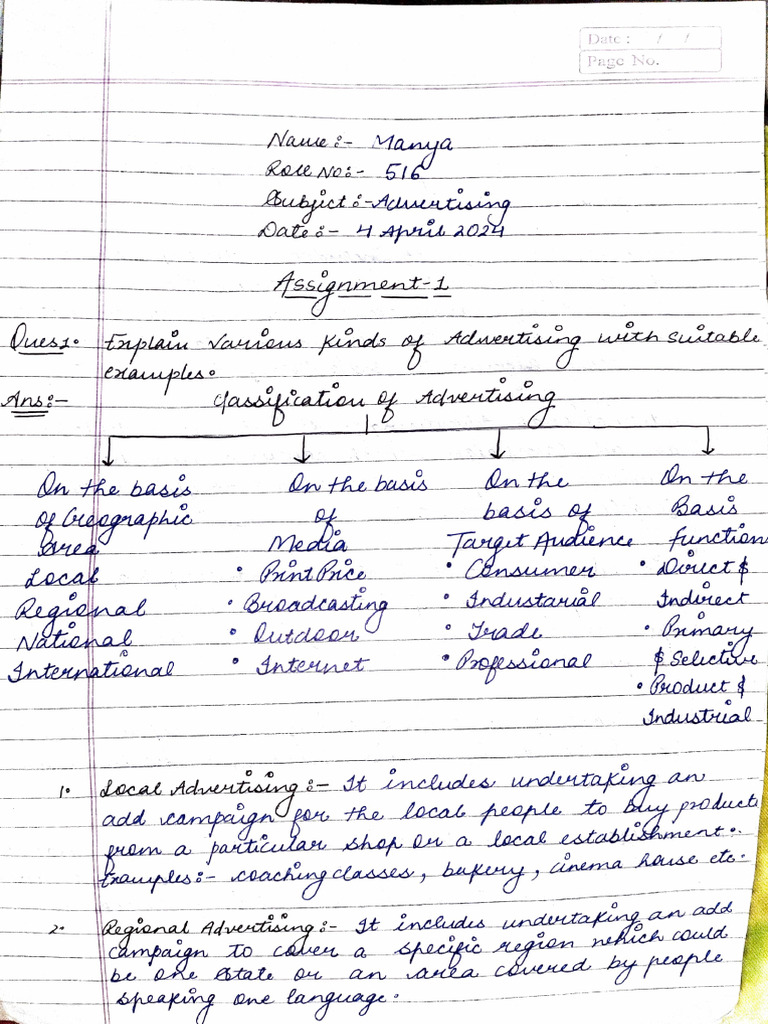 Date : / /
Page No.
Name :- Manya
Roll No :- 516
Subject :- Advertising
Date :- 4 April 2024
Assignment-1
Ques1. Explain various kinds of Advertising with suitable
examples.
Ans:- Classification of Advertising
On the basis On the basis On the On the
of Greographic of basis of Basis
Area Media Target Audience function
Local • Print Price • Consumer • Direct &
Regional • Broadcasting • Industarial Indirect
National • Outdoor • Trade • Primary
International • Internet • Professional & Selective
• Product &
Industrial
1. Local Advertising :- It includes undertaking an
add campaign for the local people to buy product
from a particular shop or a local establishment..
Examples:- coaching classes, bakery, cinema house etc.
2. Regional Advertising :- It includes undertaking an add
campaign to cover a specific region which could
be one state or an area covered by people
speaking one language.